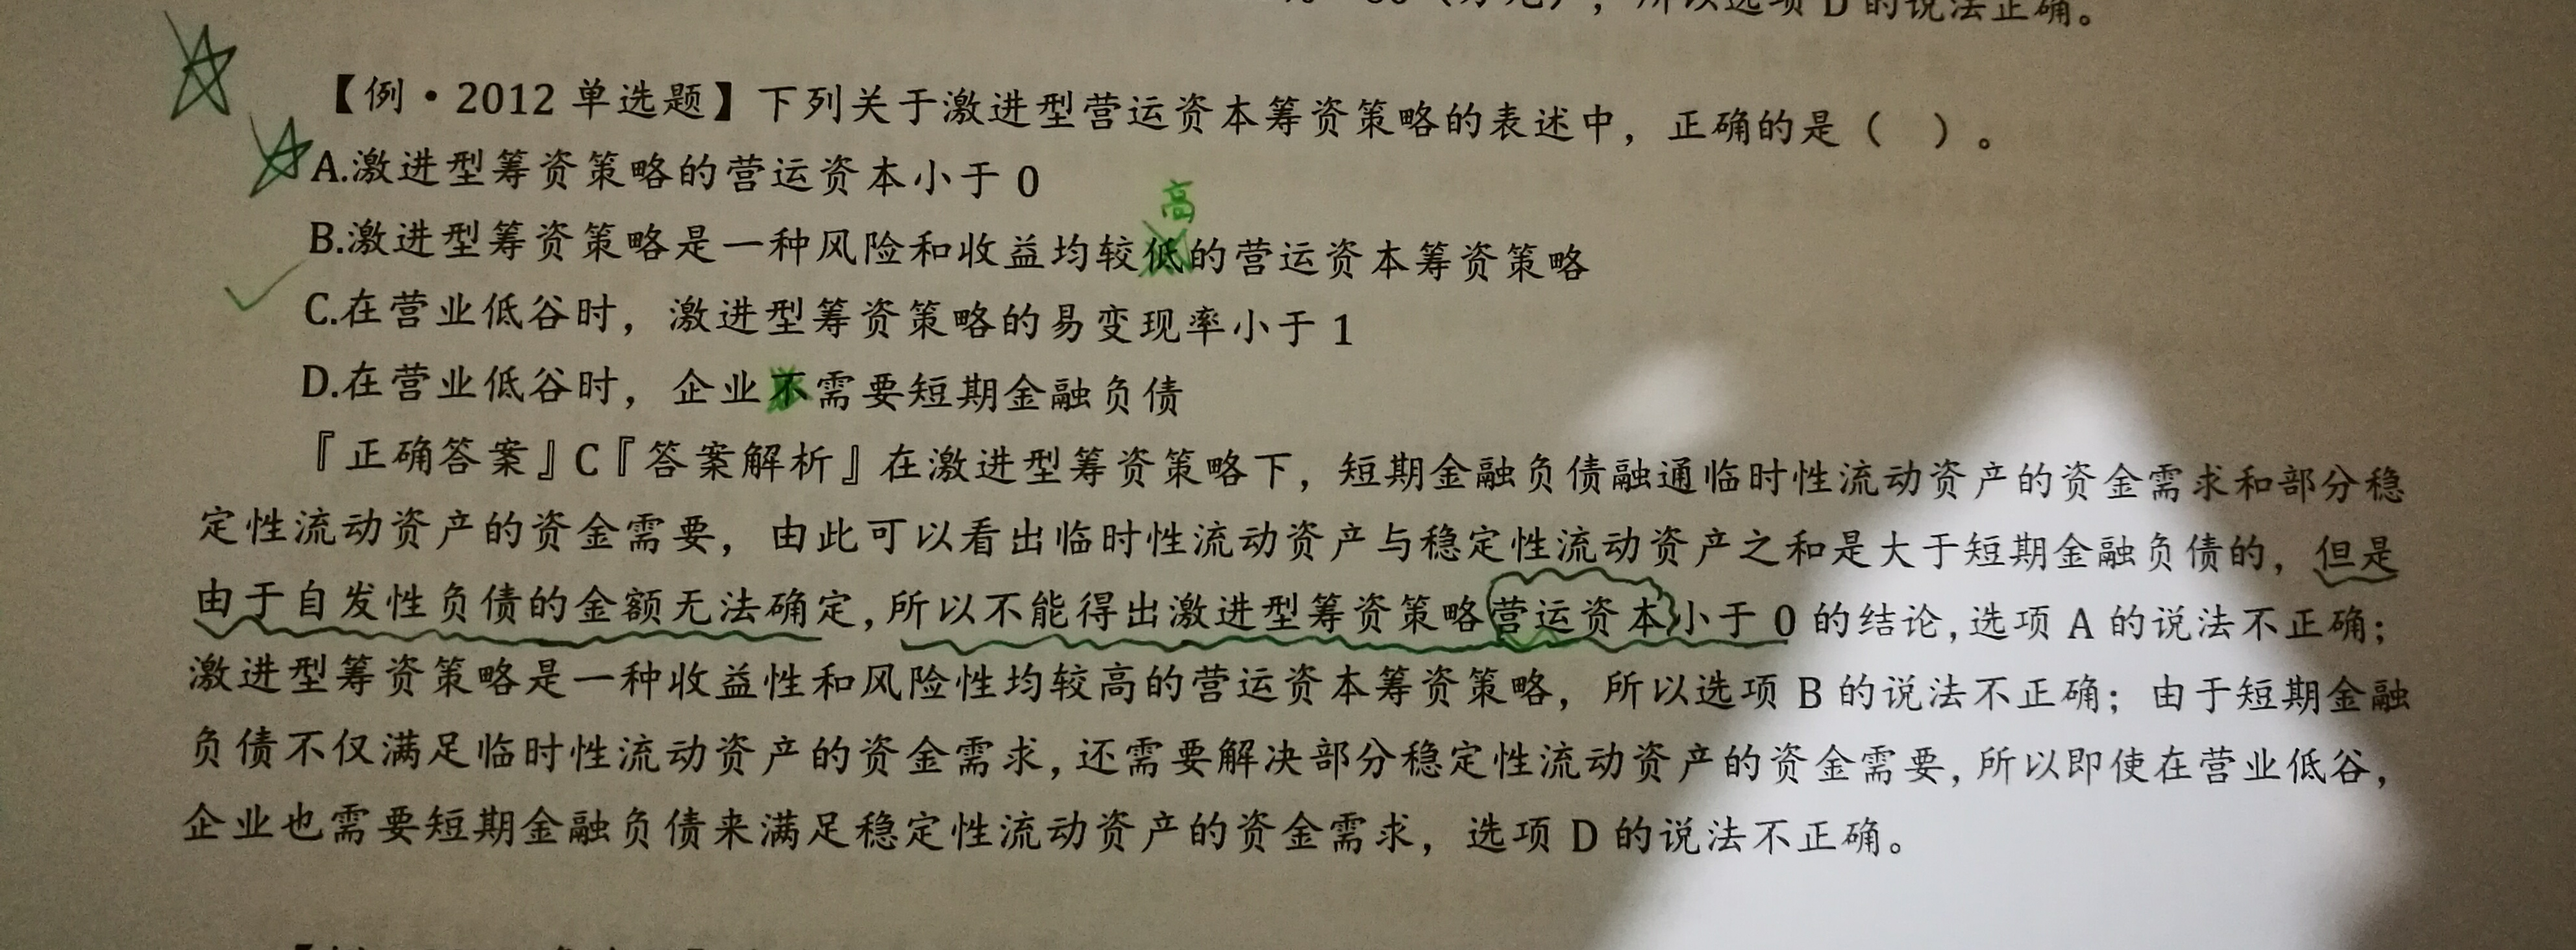 所以选项 D 的说法正确。
【例·2012 单选题】下列关于激进型营运资本筹资策略的表述中，正确的是（ ）。
A.激进型筹资策略的营运资本小于 0
高
B.激进型筹资策略是一种风险和收益均较低的营运资本筹资策略
C.在营业低谷时，激进型筹资策略的易变现率小于 1
D.在营业低谷时，企业不需要短期金融负债
『正确答案』C『答案解析』在激进型筹资策略下，短期金融负债融通临时性流动资产的资金需求和部分稳
定性流动资产的资金需要，由此可以看出临时性流动资产与稳定性流动资产之和是大于短期金融负债的，但是
由于自发性负债的金额无法确定,所以不能得出激进型筹资策略营运资本小于 0 的结论,选项 A 的说法不正确；
激进型筹资策略是一种收益性和风险性均较高的营运资本筹资策略，所以选项 B 的说法不正确；由于短期金融
负债不仅满足临时性流动资产的资金需求,还需要解决部分稳定性流动资产的资金需要,所以即使在营业低谷，
企业也需要短期金融负债来满足稳定性流动资产的资金需求，选项 D 的说法不正确。